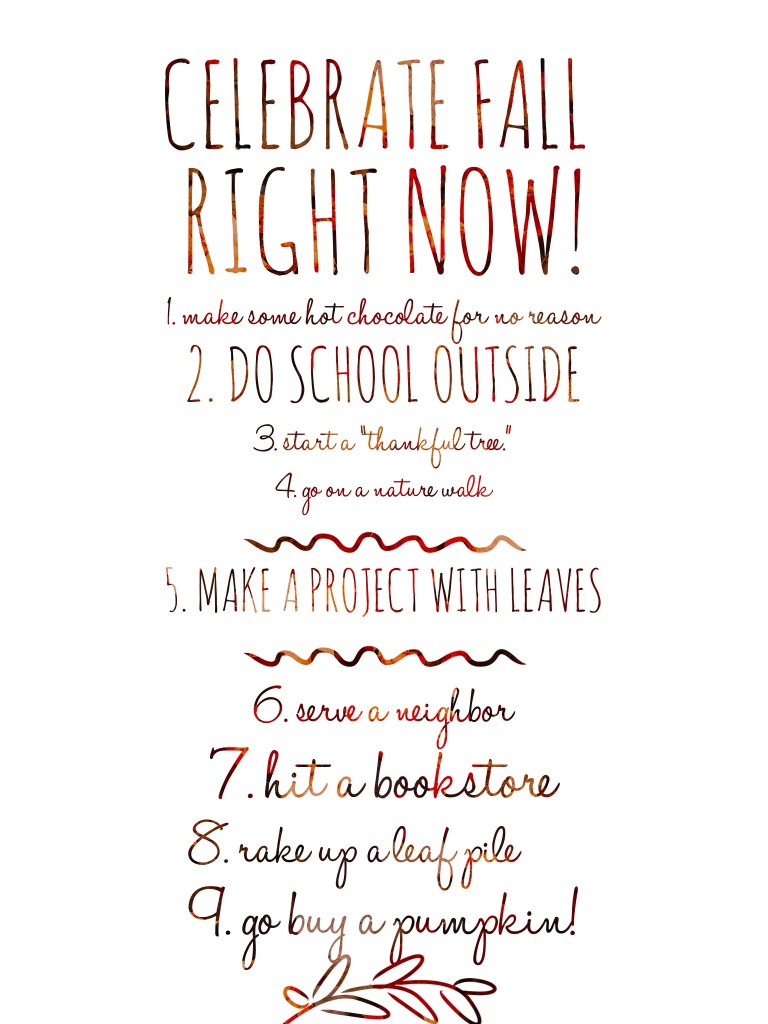 CELEBRATE FALL
RIGHT NOW!
1. make some hot chocolate for no reason
2. DO SCHOOL OUTSIDE
3. start a "thankful tree."
4. go on a nature walk
5. MAKE A PROJECT WITH LEAVES
6. serve a neighbor
7. hit a bookstore
8. rake up a leaf pile
9. go buy a pumpkin!